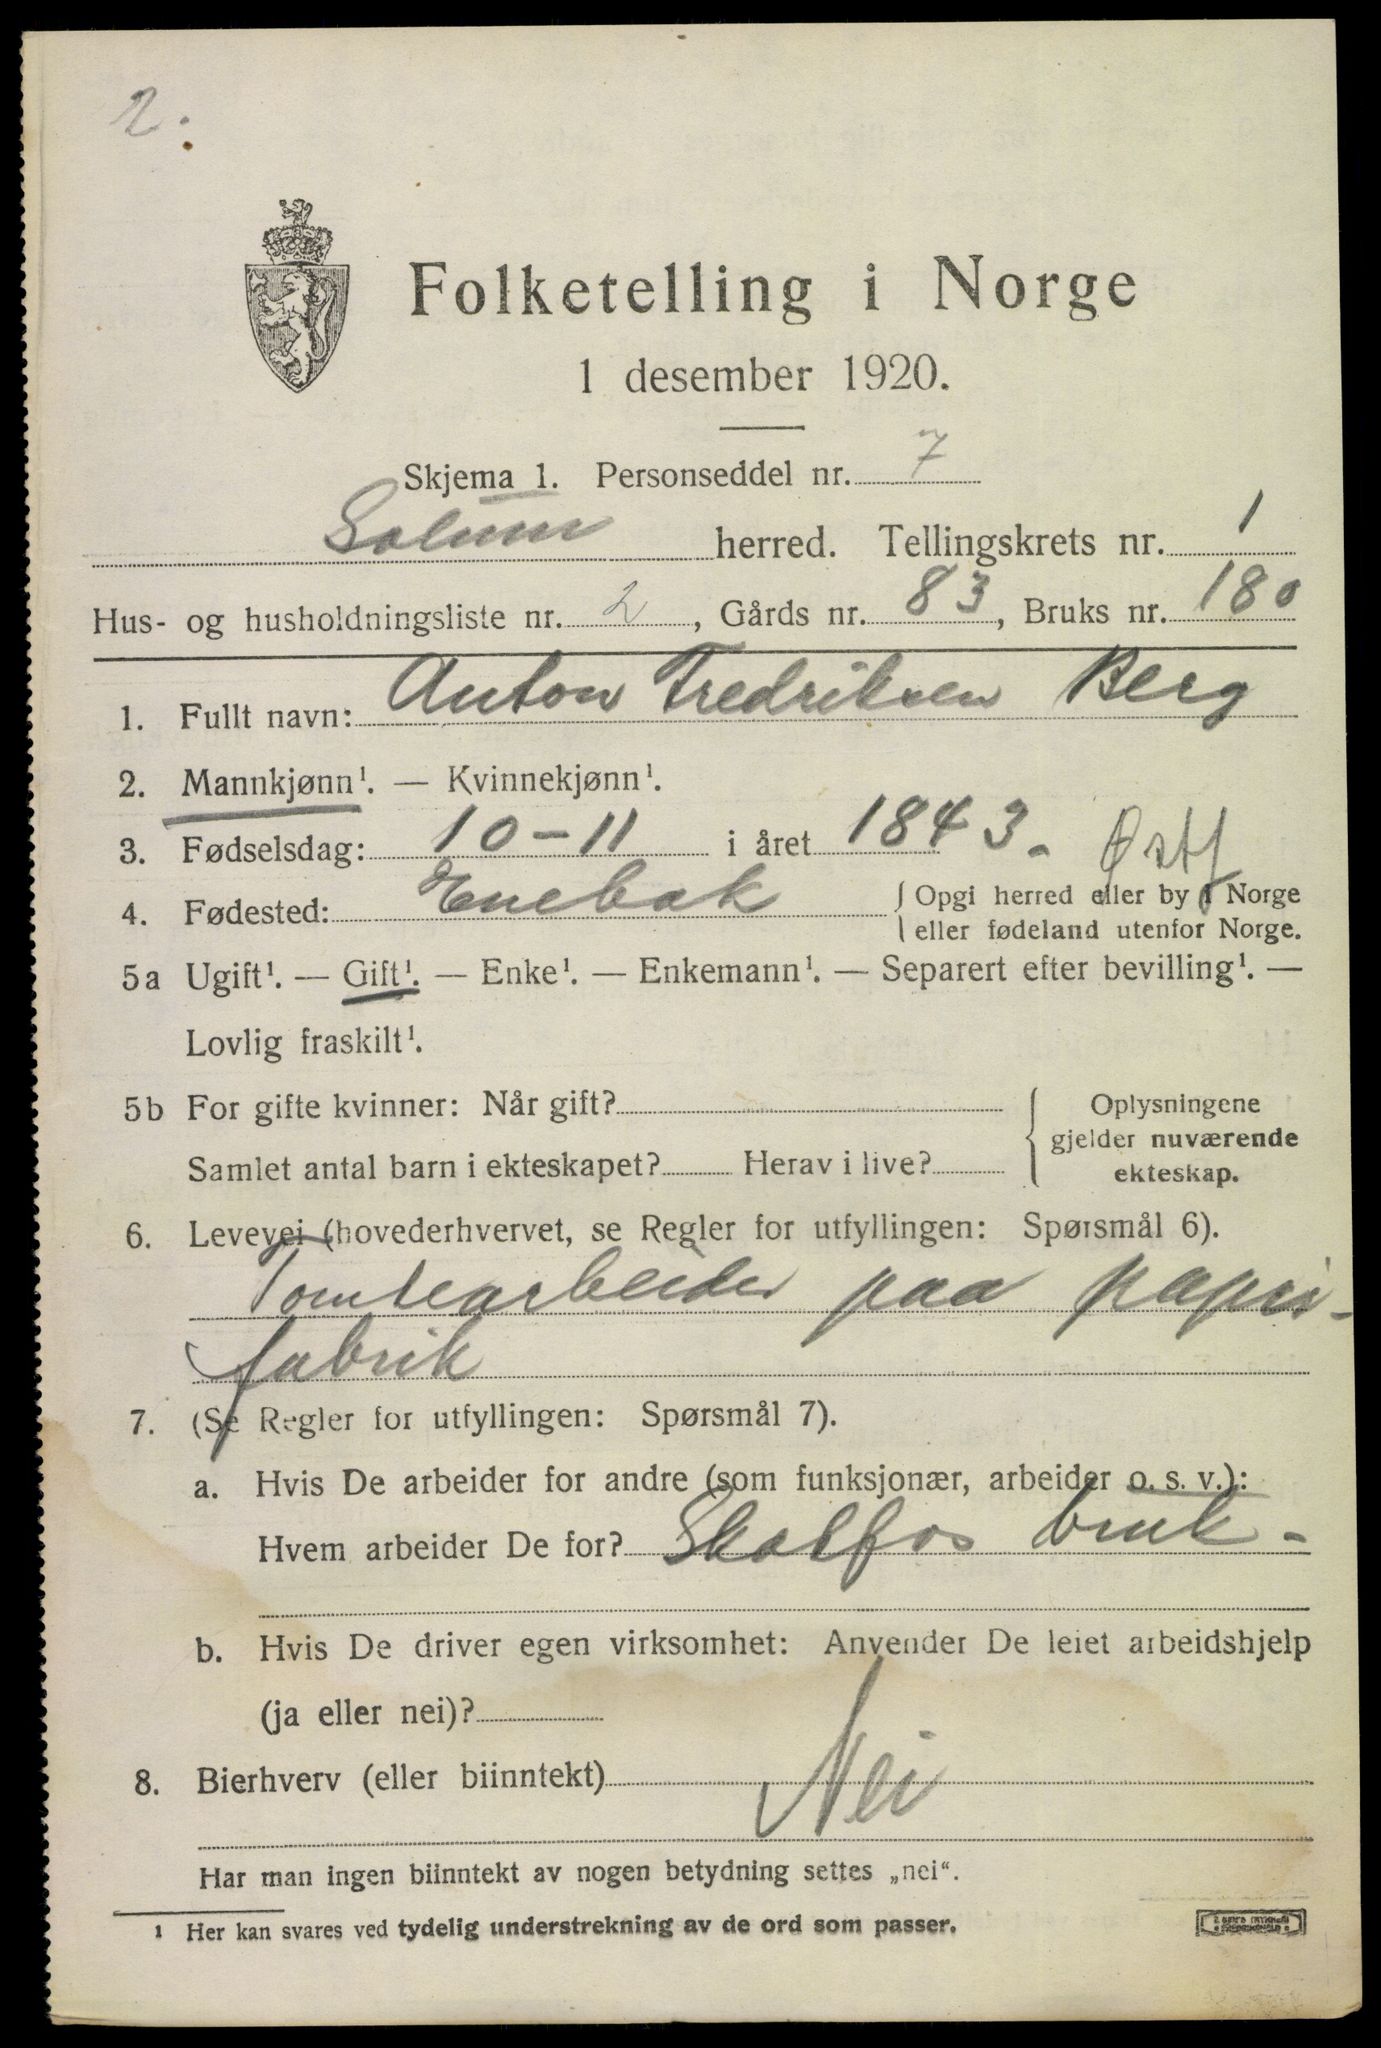 2.
Folketelling i Norge
1 desember 1920.
Skjema 1. Personseddel nr. 7
Solum herred. Tellingskrets nr. 1
Hus- og husholdningsliste nr. 2, Gårds nr. 83, Bruks nr. 180
1. Fullt navn: Anton Fredriksen Berg
2. Mannkjønn¹. — Kvinnekjønn¹.
3. Fødselsdag: 10-11 i året 1843. Østf
4. Fødested: Enebak { Opgi herred eller by i Norge
eller fødeland utenfor Norge.
5a Ugift¹. — Gift¹. — Enke¹. — Enkemann¹. — Separert efter bevilling¹. —
Lovlig fraskilt¹.
5b For gifte kvinner: Når gift? Oplysningene
gjelder nuværende
Samlet antal barn i ekteskapet? Herav i live? ekteskap.
6. Levevei (hovederhvervet, se Regler for utfyllingen: Spørsmål 6).
Tomtearbeider paa papir-
fabrik
7. (Se Regler for utfyllingen: Spørsmål 7).
a. Hvis De arbeider for andre (som funksjonær, arbeider o. s. v.):
Hvem arbeider De for? Skotfos bruk-
b. Hvis De driver egen virksomhet: Anvender De leiet arbeidshjelp
(ja eller nei)?
8. Bierhverv (eller biinntekt) Nei
Har man ingen biinntekt av nogen betydning settes „nei“.
¹ Her kan svares ved tydelig understrekning av de ord som passer.